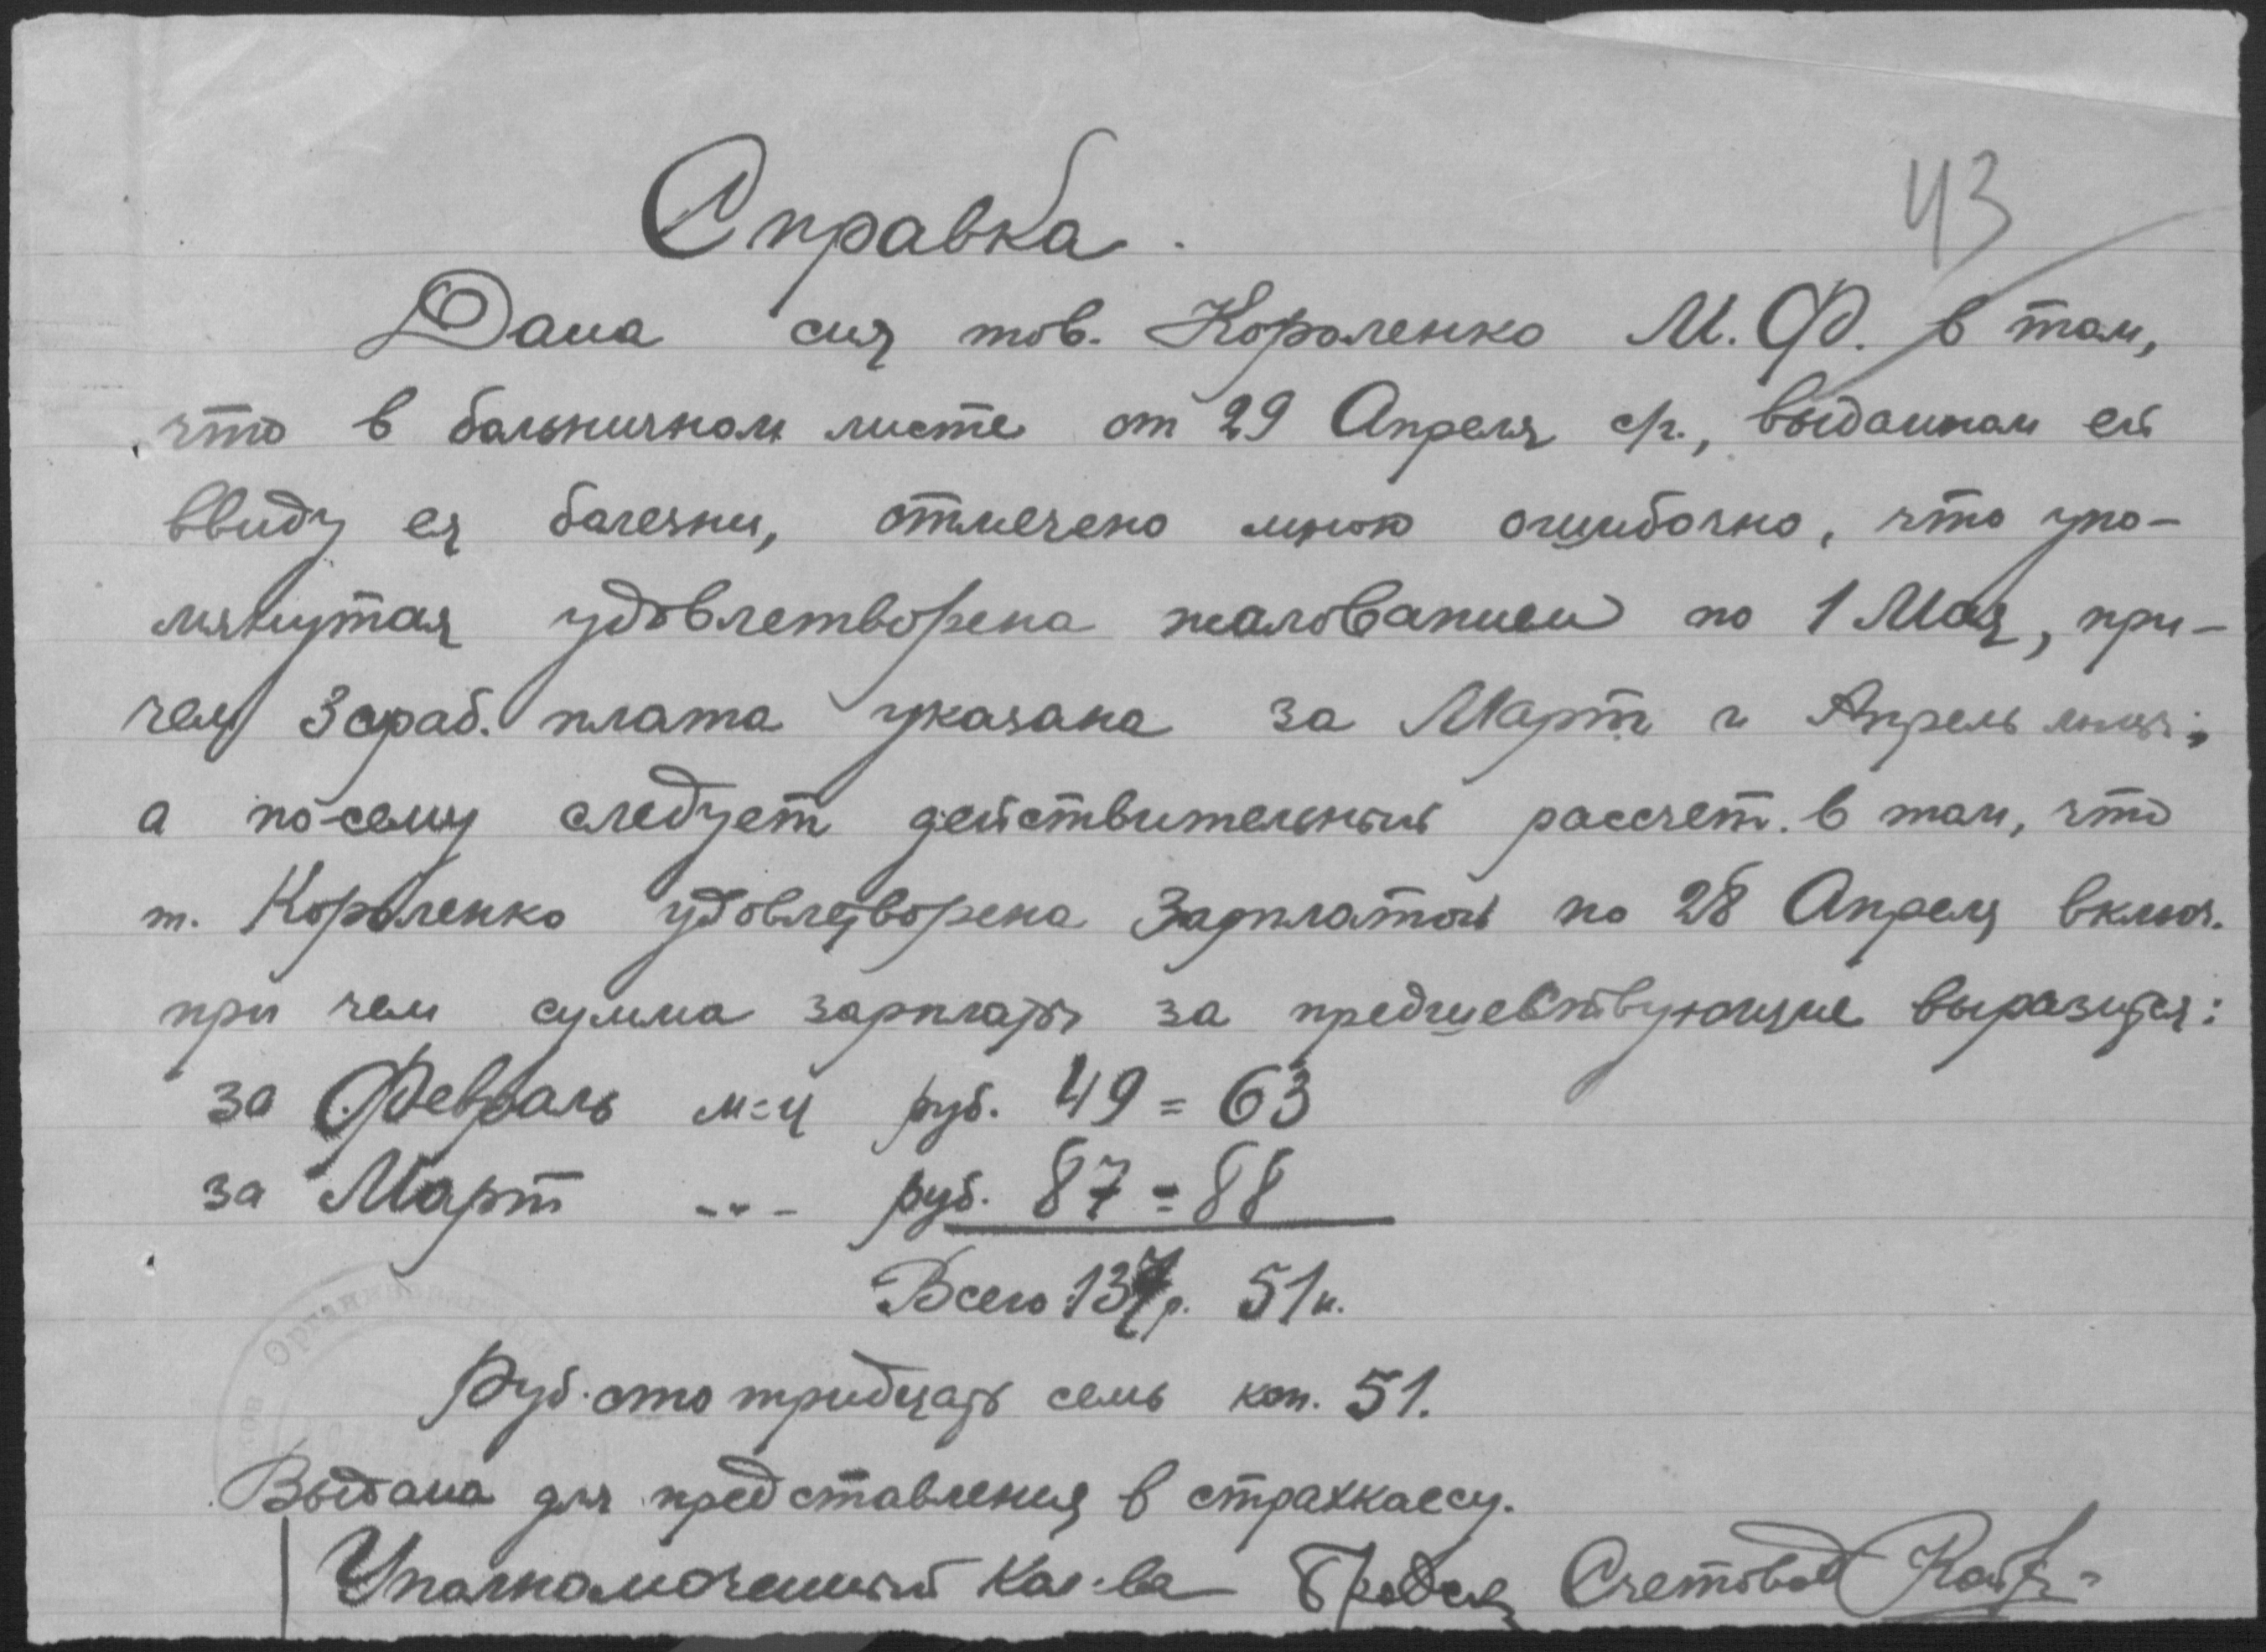 43
Справка.
Дана сия тов. Короленко М. Ф. в том,
что в больничном листе от 29 Апреля с/г., выданном ей
ввиду ея болезни, отмечено мною ошибочно, что упо-
мянутая удовлетворена жалованием по 1 Мая, при-
чем зараб. плата указана за Март и Апрель
а по-сему следует действительный рассчет. в том, что
т. Короленко удовлетворена Зарплатой по 28 Апреля включ.
при чем сумма зарплаты за предшествующие выразится:
за Февраль м=ц руб. 49 = 63
за Март -"- руб. 87 = 88
Всего 137р. 51к.
Руб. сто тридцать семь коп. 51.
Выдана для представления в страхкассу.
Уполномоченный Кол-ва Счетовод